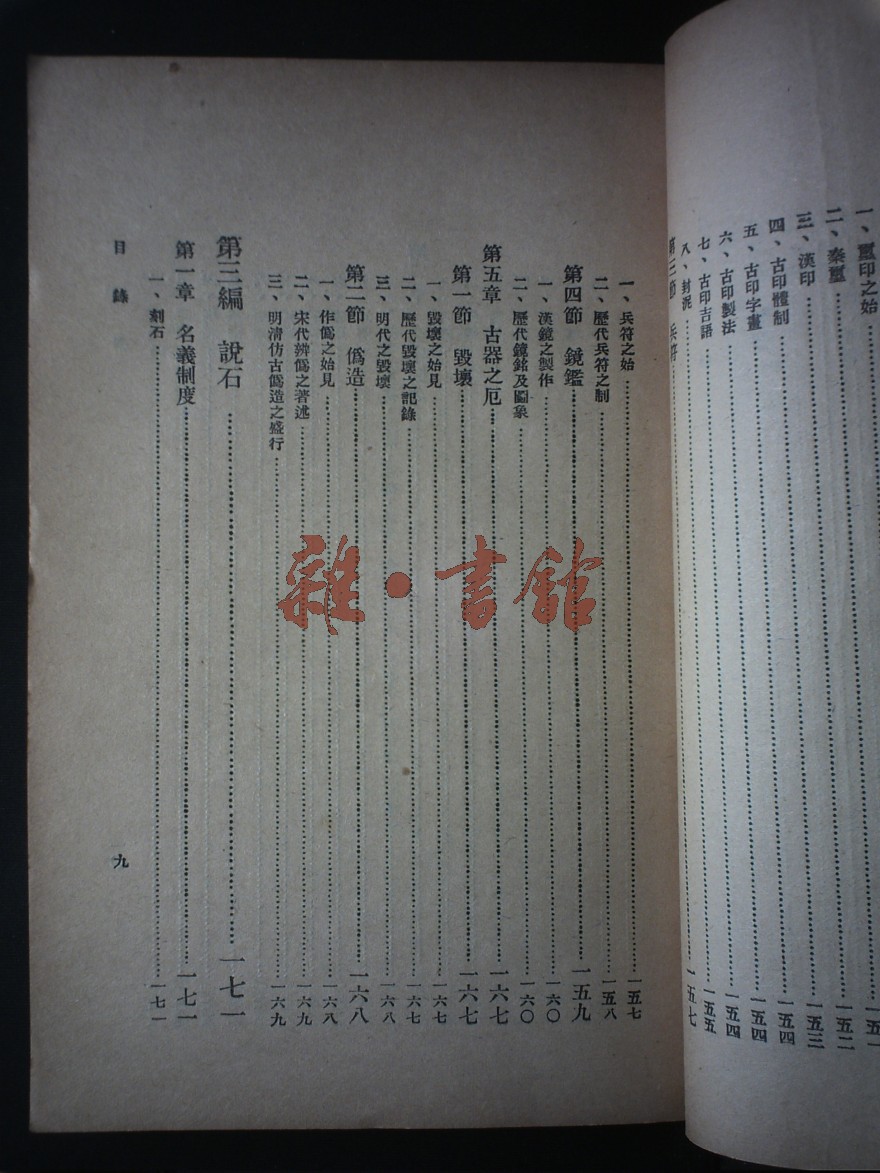 一、璽印之始……一五一
二、秦璽……一五二
三、漢印……一五三
四、古印體制……一五四
五、古印字畫……一五四
六、古印製法……一五四
七、古印吉語……一五五
八、封泥
第三節 兵符……一五七
一、兵符之始……一五七
二、歷代兵符之制……一五八
第四節 鏡鑑……一五九
一、漢鏡之製作……一六〇
二、歷代鏡銘及圖象……一六〇
第五章 古器之厄……一六七
第一節 毀壞……一六七
一、毀壞之始見……一六七
二、歷代毀壞之記錄……一六七
三、明代之毀壞……一六八
第二節 僞造……一六八
一、作僞之始見……一六八
二、宋代辨僞之著述……一六九
三、明清仿古僞造之盛行……一六九
第三編 說石……一七一
第一章 名義制度……一七一
一、刻石……一七一
目錄
九
雜·書館